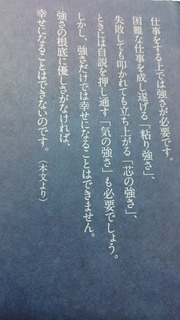 仕事をする上では強さが必要です。
困難な仕事を成し遂げる「粘り強さ」、
失敗しても叩かれても立ち上がる「芯の強さ」、
ときには自説を押し通す「気の強さ」も必要でしょう。
しかし、強さだけでは幸せになることはできません。
強さの根底に優しさがなければ、
幸せになることはできないのです。（本文より）